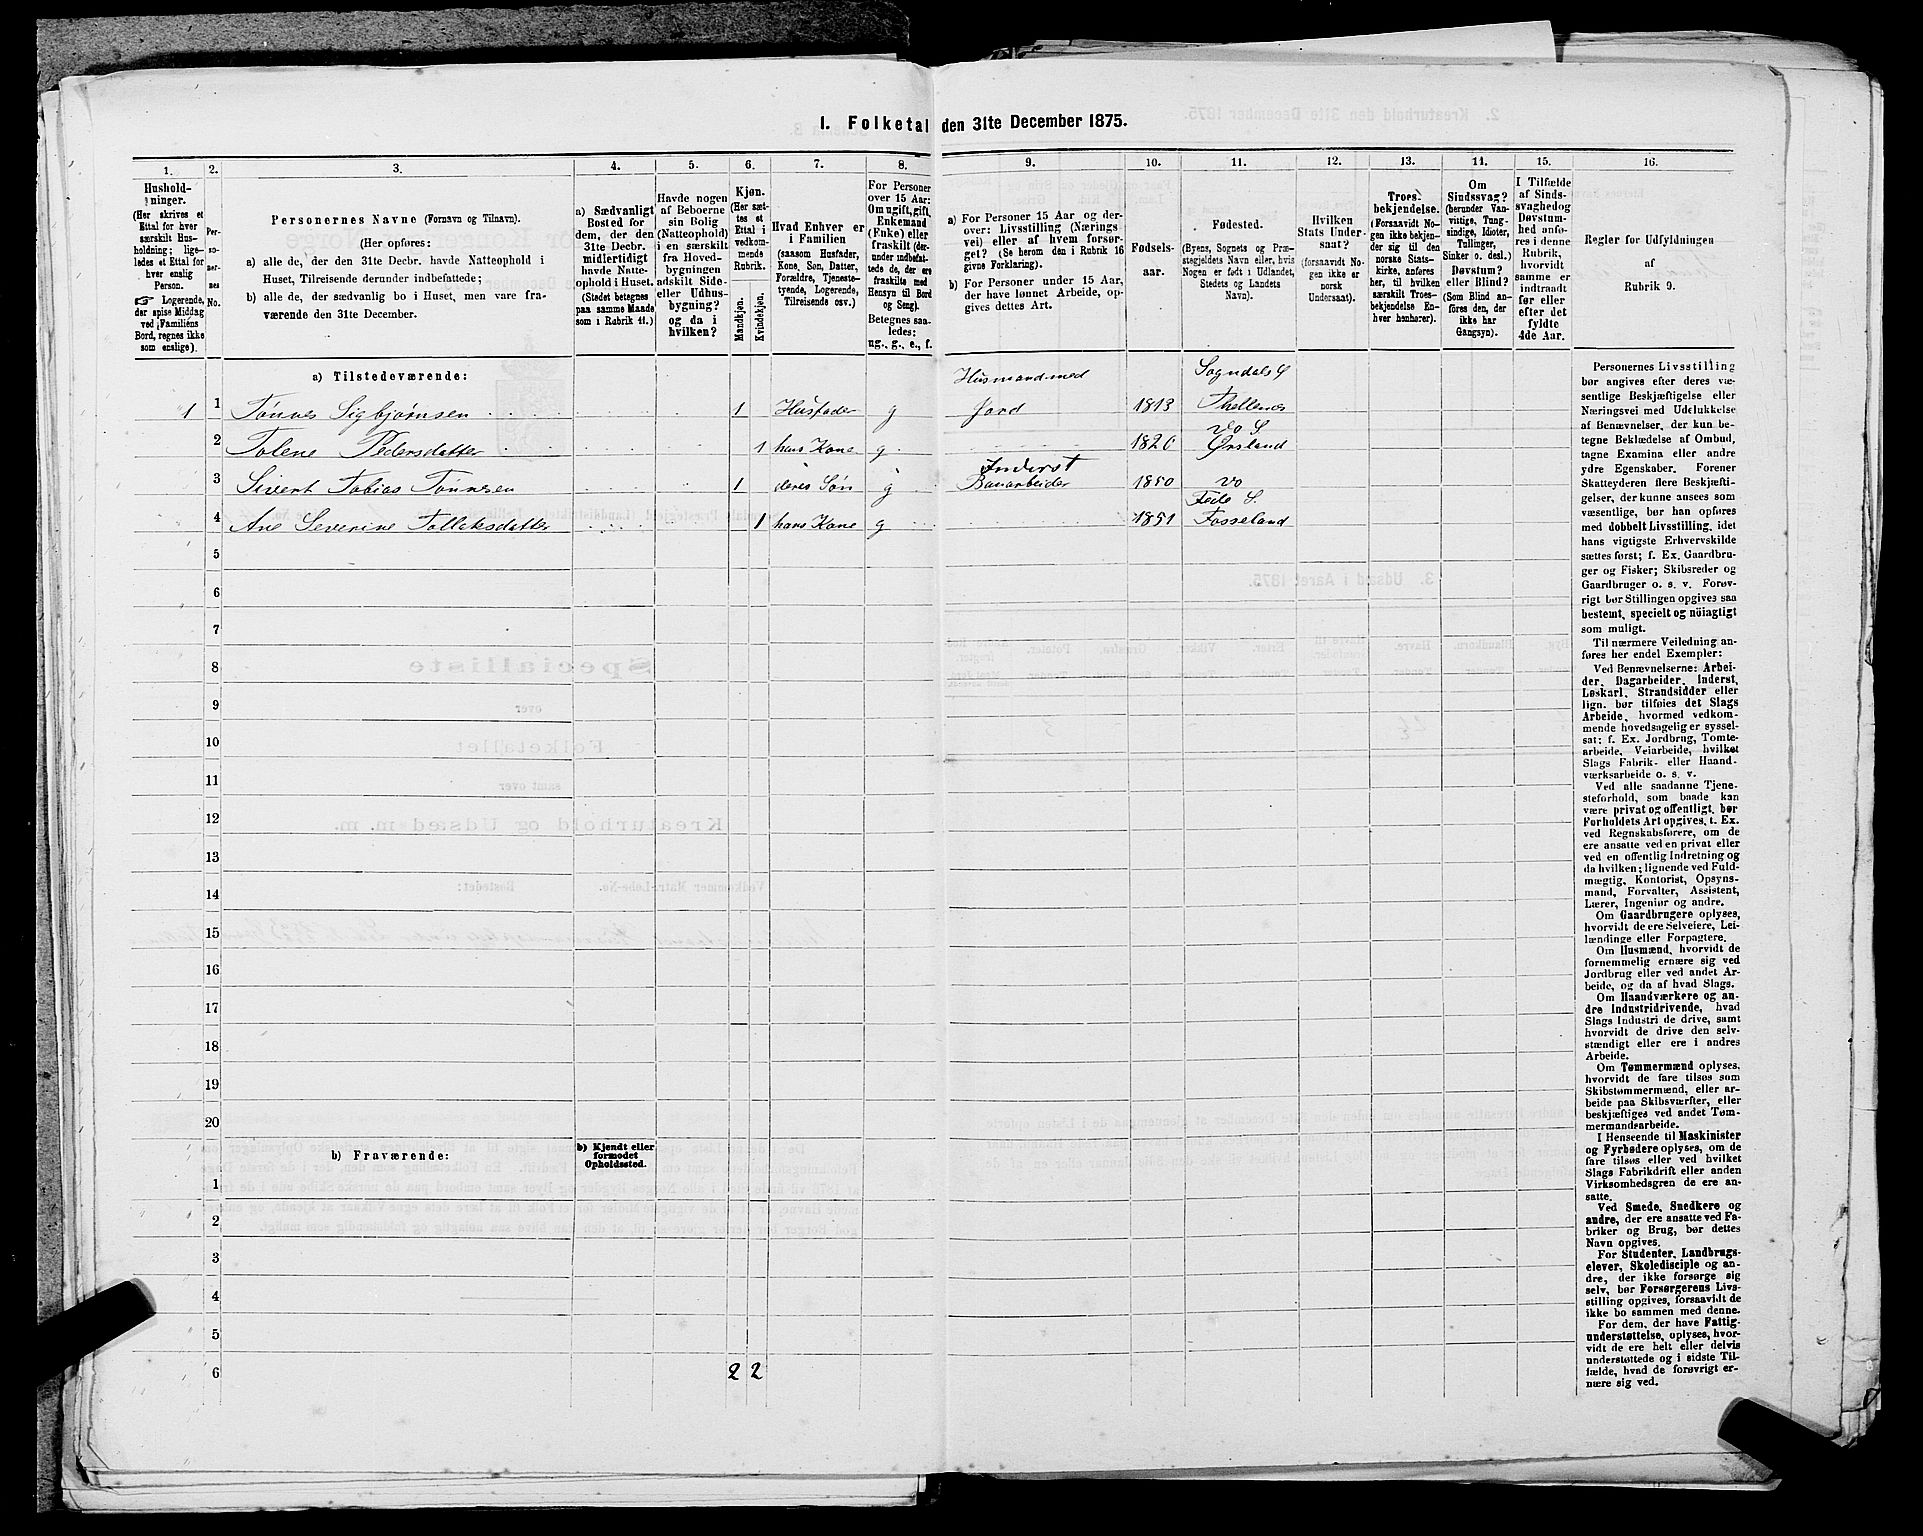 I. Folketal den 31te December 1875.
1. 2. 3. 4. 5. 6. 7. 8. 9. 10. 11. 12. 13. 14. 15. 16.
Hushold-
ninger.
(Her skrives et
Ettal for hver
særskilt Hus-
holdning; lige-
ledes et Ettal for
hver enslig
Person.
☞ Logerende,
der spise Middag
ved Familiens
Bord, regnes ikke
som enslige).
Per-
so-
ner-
nes
No.
Personernes Navne (Fornavn og Tilnavn).
(Her opføres:
a) alle de, der den 31te Decbr. havde Natteophold i
Huset, Tilreisende derunder indbefattede;
b) alle de, der sædvanlig bo i Huset, men vare fra-
værende den 31te December.
a) Sædvanligt
Bosted for
dem, der den
31te Decbr.
midlertidigt
havde Natte-
ophold i Huset.
(Stedet betegnes
paa samme Maade
som i Rubrik 11.)
Havde nogen
af Beboerne
sin Bolig
(Natteophold)
i en særskilt
fra Hoved-
bygningen
adskilt Side-
eller Udhus-
bygning?
og da i
hvilken?
Kjøn.
(Her sæt-
tes et
Ettal i
vedkom-
mende
Rubrik.
Mandkjøn.
Kvindekjøn.
Hvad Enhver er
i Familien
(saasom Husfader,
Kone, Søn, Datter,
Forældre, Tjeneste-
tyende, Logerende,
Tilreisende osv.)
For Personer
over 15 Aar:
Om ugift, gift,
Enkemand
(Enke) eller
fraskilt (der-
under indbefat-
tede de, der ere
fraskilte med
Hensyn til Bord
og Seng).
Betegnes saa-
ledes:
ug., g., e., f.
a) For Personer 15 Aar og der-
over: Livsstilling (Nærings-
vei) eller af hvem forsør-
get? (Se herom den i Rubrik 16
givne Forklaring).
b) For Personer under 15 Aar,
der have lønnet Arbeide, op-
gives dettes Art.
Fødsels-
aar.
Fødested.
(Byens, Sognets og Præ-
stegjeldets Navn eller, hvis
Nogen er født i Udlandet,
Stedets og Landets
Navn).
Hvilken
Stats Under-
saat?
(forsaavidt No-
gen ikke er
norsk
Undersaat).
Troes-
bekjendelse.
(Forsaavidt No-
gen ikke bekjen-
der sig til den
norske Stats-
kirke, anføres
her, til hvilken
særskilt Troes-
bekjendelse En-
hver henhører).
Om
Sindssvag?
(herunder Van-
vittige, Tung-
sindige, Idioter,
Tullinger,
Sinker o. desl.)
Døvstum?
eller Blind?
(Som Blind an-
føres den, der
ikke har
Gangsyn).
I Tilfælde
af Sinds-
svaghed og
Døvstum-
hed anfø-
res i denne
Rubrik,
hvorvidt
samme er
indtraadt
før eller
efter det
fyldte
4de Aar.
Regler for Udfyldningen
af
Rubrik 9.
a) Tilstedeværende:
Husmand med Sogndals S
1 1 Tønnes Sigbjørnsen 1 Husfader g Jord 1813 Thellenes
do S
2 Tolene Pedersdatter 1 hans Kone g 1820 Ørsland
Inderst
3 Sivert Tobias Tønnesen 1 deres Søn g Banarbeider 1850 do
Fede S.
4 Ane Severine Tollaksdatter 1 hans Kone g 1851 Fosseland
5
6
7
8
9
10
11
12
13
14
15
16
17
18
19
20
b) Fraværende:
b) Kjendt eller
formodet
Opholdssted.
1
2
3
4
5
6 2 2
Personernes Livsstilling
bør angives efter deres væ-
sentlige Beskjæftigelse eller
Næringsvei med Udelukkelse
af Benævnelser, der kun be-
tegne Beklædelse af Ombud,
tagne Examina eller andre
ydre Egenskaber. Forener
Skatteyderen flere Beskjæfti-
gelser, der kunne ansees som
væsentlige, bør han opføres
med dobbelt Livsstilling, idet
hans vigtigste Erhvervskilde
sættes først; f. Ex. Gaardbru-
ger og Fisker; Skibsreder og
Gaardbruger o. s. v. Forøv-
rigt bør Stillingen opgives saa
bestemt, specielt og nøiagtigt
som muligt.
Til nærmere Veiledning an-
føres her endel Exempler:
Ved Benævnelserne: Arbei-
der, Dagarbeider, Inderst,
Løskarl, Strandsidder eller
lign. bør tilføies det Slags
Arbeide, hvormed vedkom-
mende hovedsagelig er syssel-
sat; f. Ex. Jordbrug, Tomte-
arbeide, Veiarbeide, hvilket
Slags Fabrik- eller Haand-
værksarbeide o. s. v.
Ved alle saadanne Tjene-
steforhold, som baade kan
være privat og offentligt, bør
Forholdets Art opgives, t. Ex.
ved Regnskabsførere, om de
ere ansatte ved en privat eller
ved en offentlig Indretning og
da hvilken; lignende ved Fuld-
mægtig, Kontorist, Opsyns-
mand, Forvalter, Assistent,
Lærer, Ingeniør og andre.
Om Gaardbrugere oplyses,
hvorvidt de ere Selveiere, Lei-
lændinge eller Forpagtere.
Om Husmænd, hvorvidt de
fornemmelig ernære sig ved
Jordbrug eller ved andet Ar-
beide, og da af hvad Slags.
Om Haandværkere og an-
dre Industridrivende, hvad
Slags Industri de drive, samt
hvorvidt de drive den selv-
stændigt eller ere i andres
Arbeide.
Om Tømmermænd oplyses,
hvorvidt de fare tilsøs som
Skibstømmermænd, eller ar-
beide paa Skibsværfter, eller
beskjæftiges ved andet Tøm-
mermandsarbeide.
I Henseende til Maskinister
og Fyrbødere oplyses, om de
fare tilsøs eller ved hvilket
Slags Fabrikdrift eller anden
Virksomhedsgren de ere an-
satte.
Ved Smede, Snedkere og
andre, der ere ansatte ved Fa-
briker og Brug, bør dettes
Navn opgives.
For Studenter, Landbrugs-
elever, Skoledisciple og an-
dre, der ikke forsørge sig
selv, bør Forsørgerens Livs-
stilling opgives, forsaavidt de
ikke bo sammen med denne.
For dem, der have Fattig-
understøttelse, oplyses, hvor-
vidt de ere helt eller delvis
understøttede og i sidste Til-
fælde, hvad de forøvrigt er-
nære sig ved.